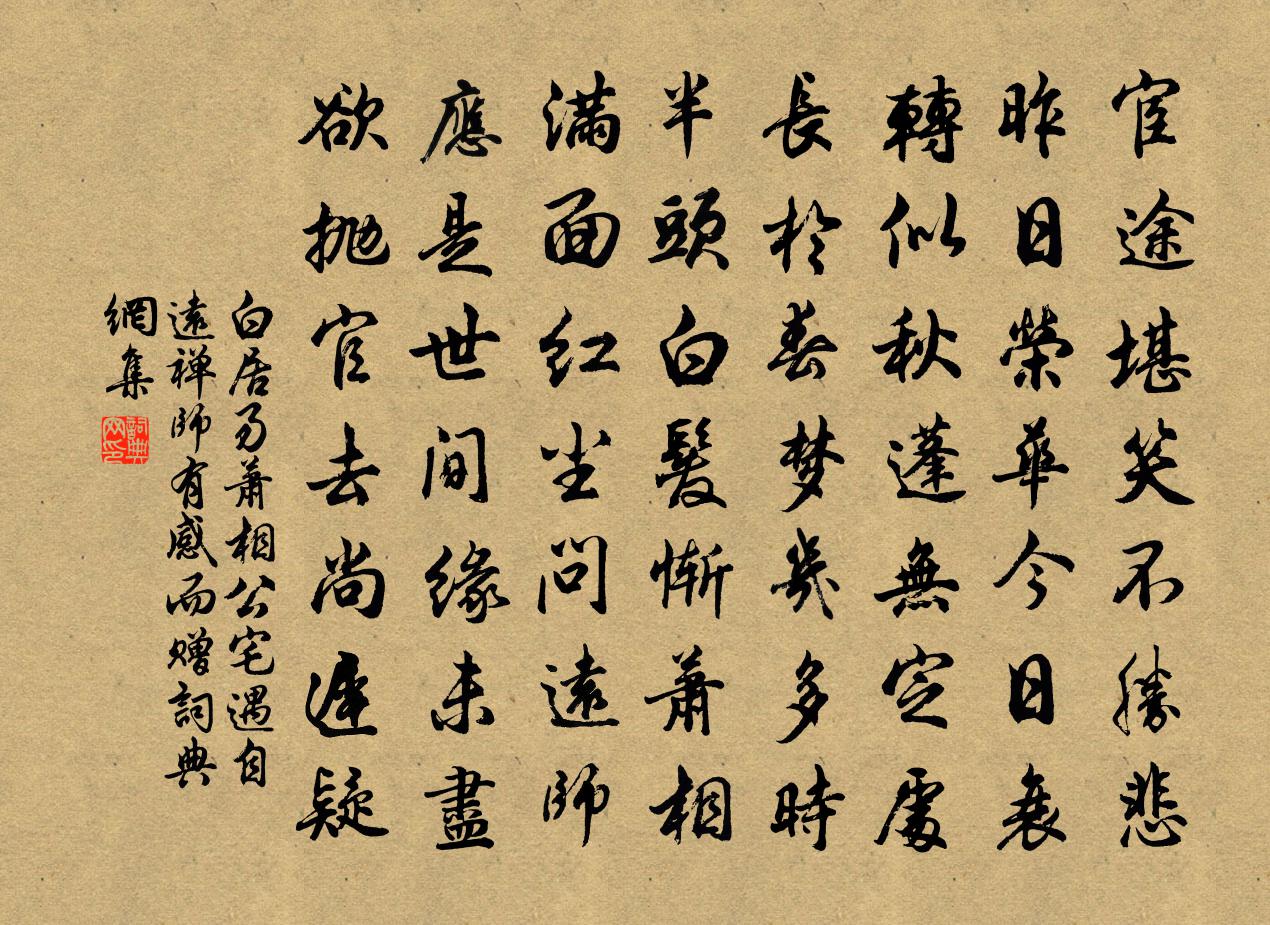 宦途堪笑不勝悲
昨日榮華今日衰
轉似秋蓬無定處
長於春梦幾多時
半頭白髮慚蕭相
滿面紅尘問遠師
應是世間緣未盡
欲抛官去尚遲疑
白居易蕭相公宅遇自
遠禅師有感而赠詞典
網集
詞典
网印